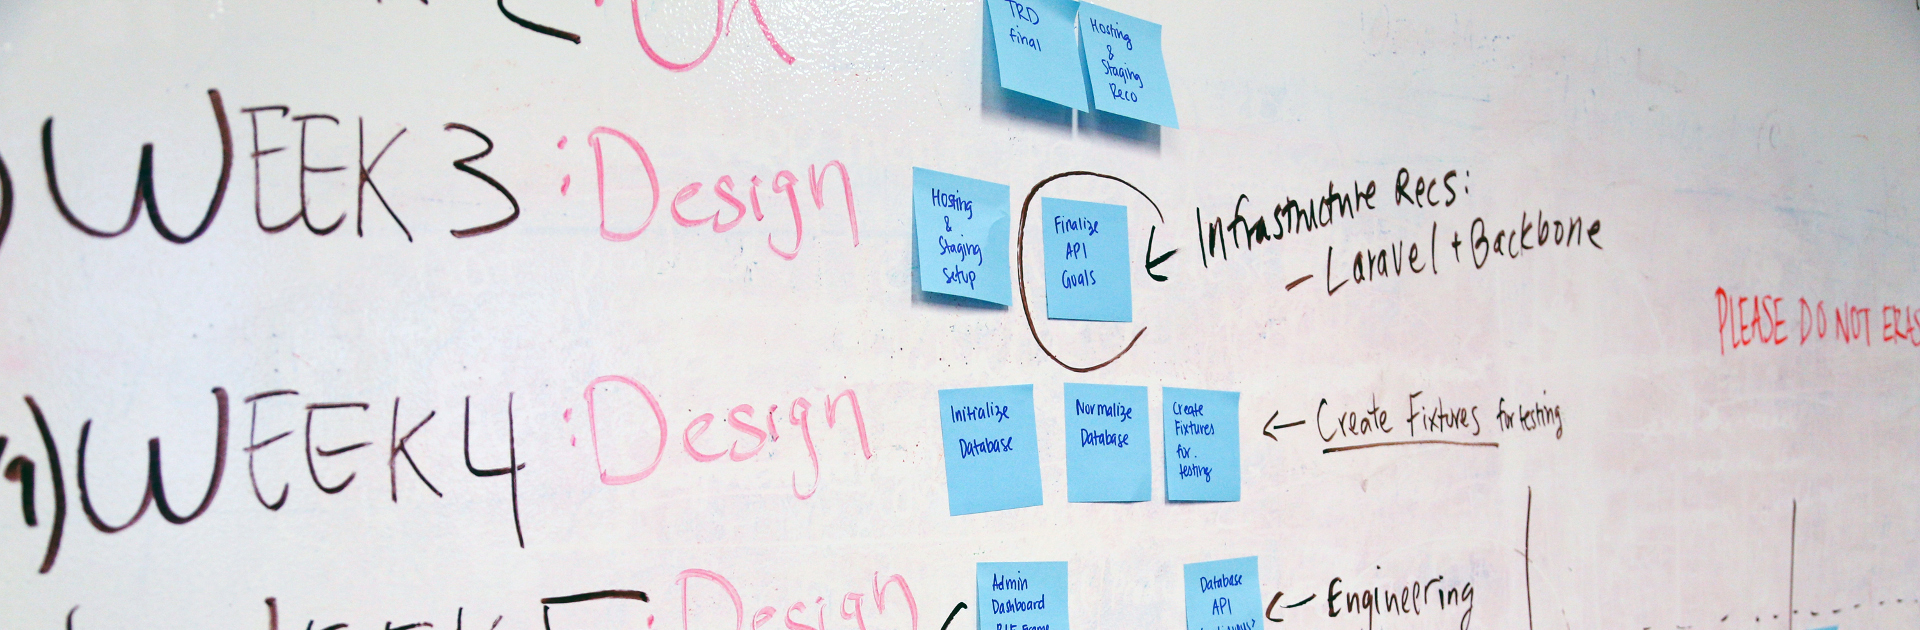 TRD
final
Hosting
&
Staging
Reco
WEEK 3 : Design
Hosting
&
Staging
Setup
Finalize
API
Goals
Infrastructure Recs:
- Laravel + Backbone
PLEASE DO NOT ERAS
WEEK 4 : Design
Initialize
Database
Normalize
Database
Create
Fixtures
for
testing
← Create Fixtures for testing
: Design
Admin
Dashboard
Database
API
← Engineering